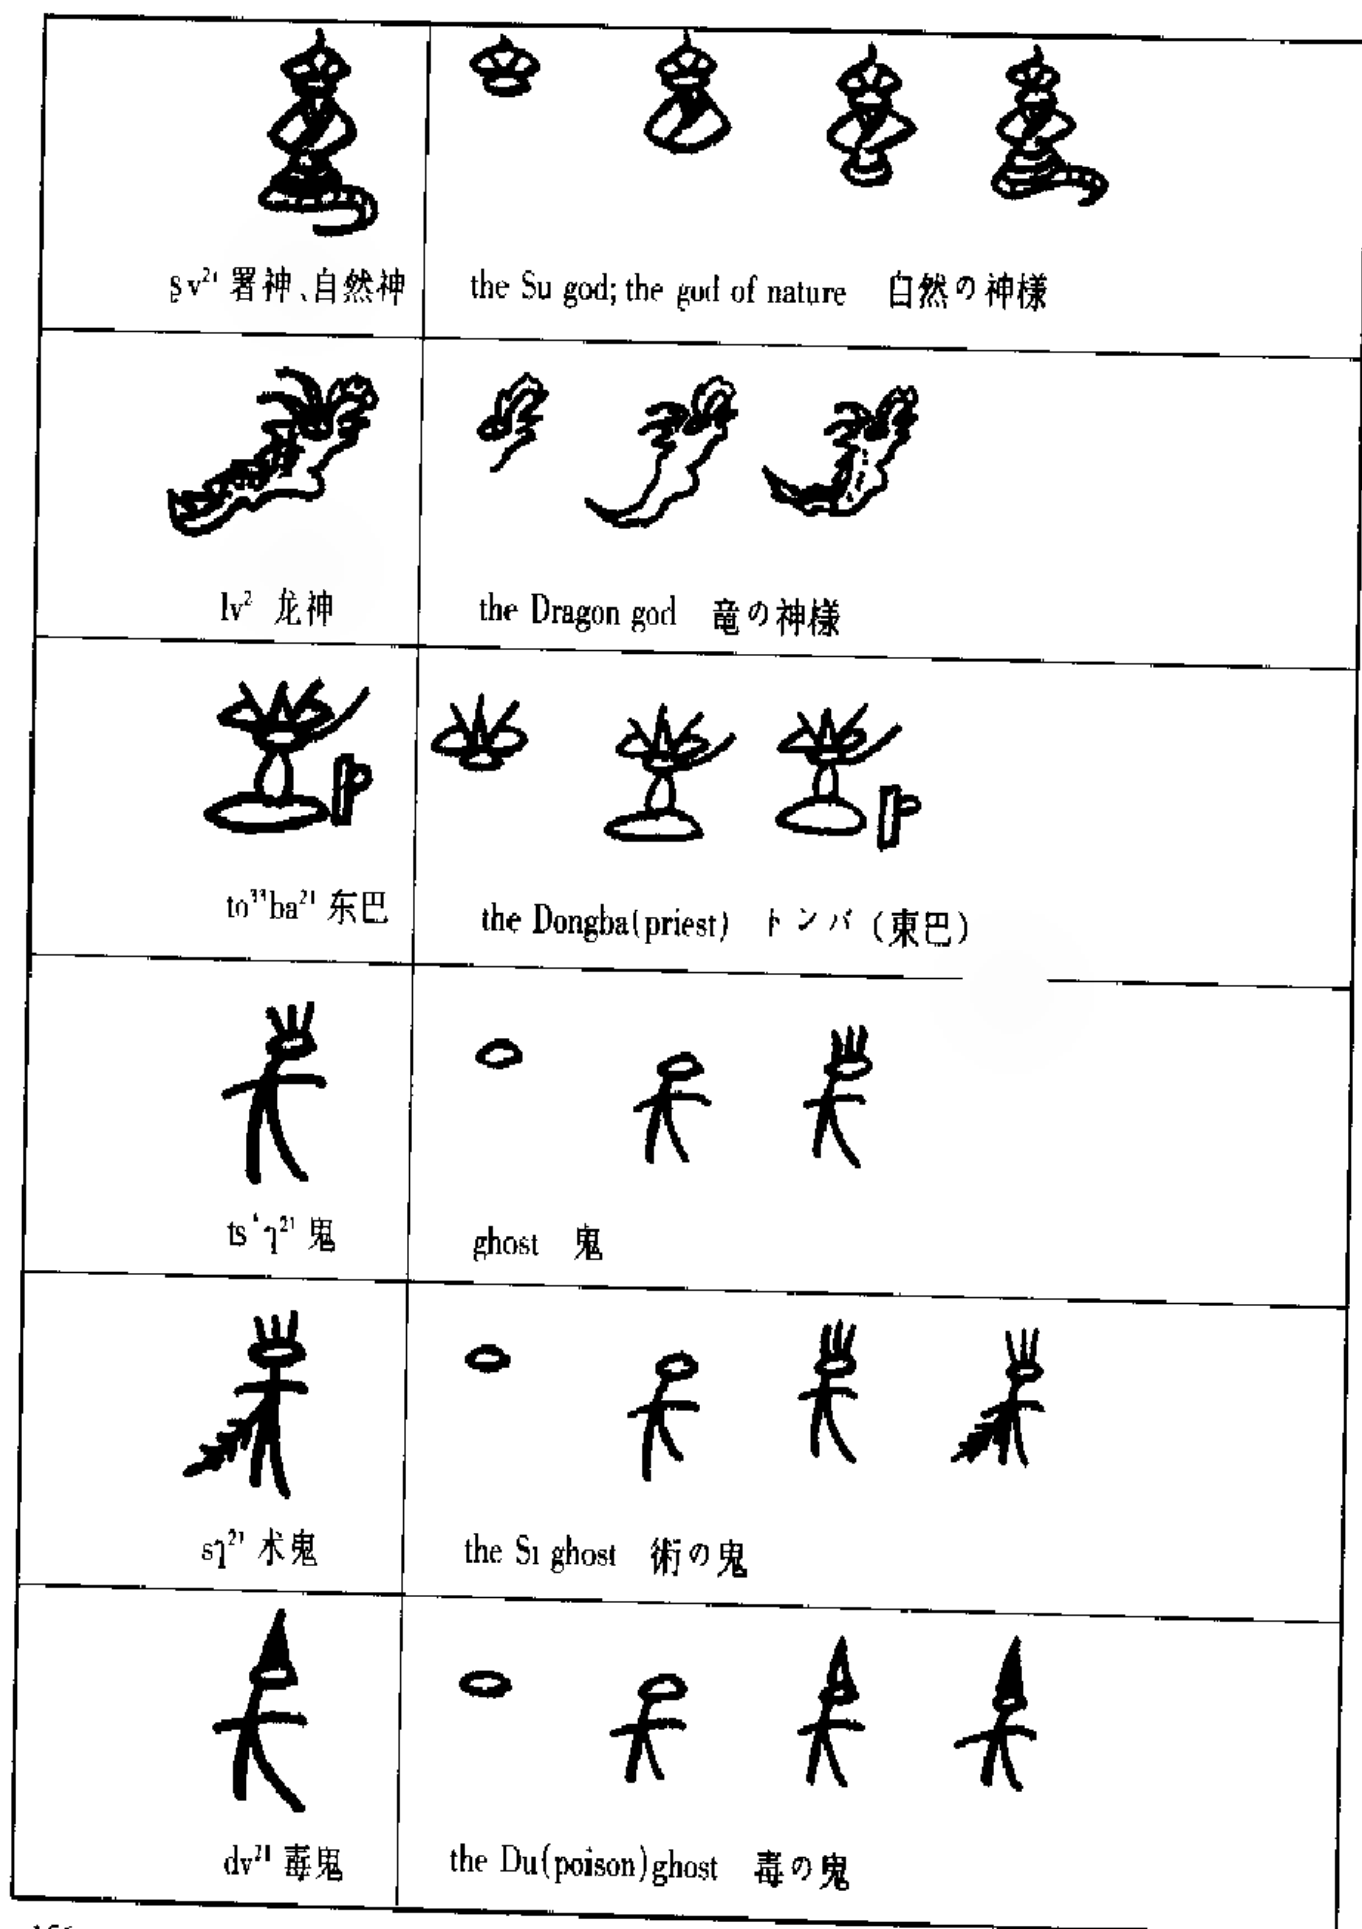 ʂv²¹ 署神、自然神
the Su god; the god of nature 自然の神様
lv² 龙神
the Dragon god 竜の神様
to³³ba²¹ 东巴
the Dongba(priest) トンバ（東巴）
ts‘ɿ²¹ 鬼
ghost 鬼
sɿ²¹ 术鬼
the Sı ghost 術の鬼
dv²¹ 毒鬼
the Du(poison)ghost 毒の鬼